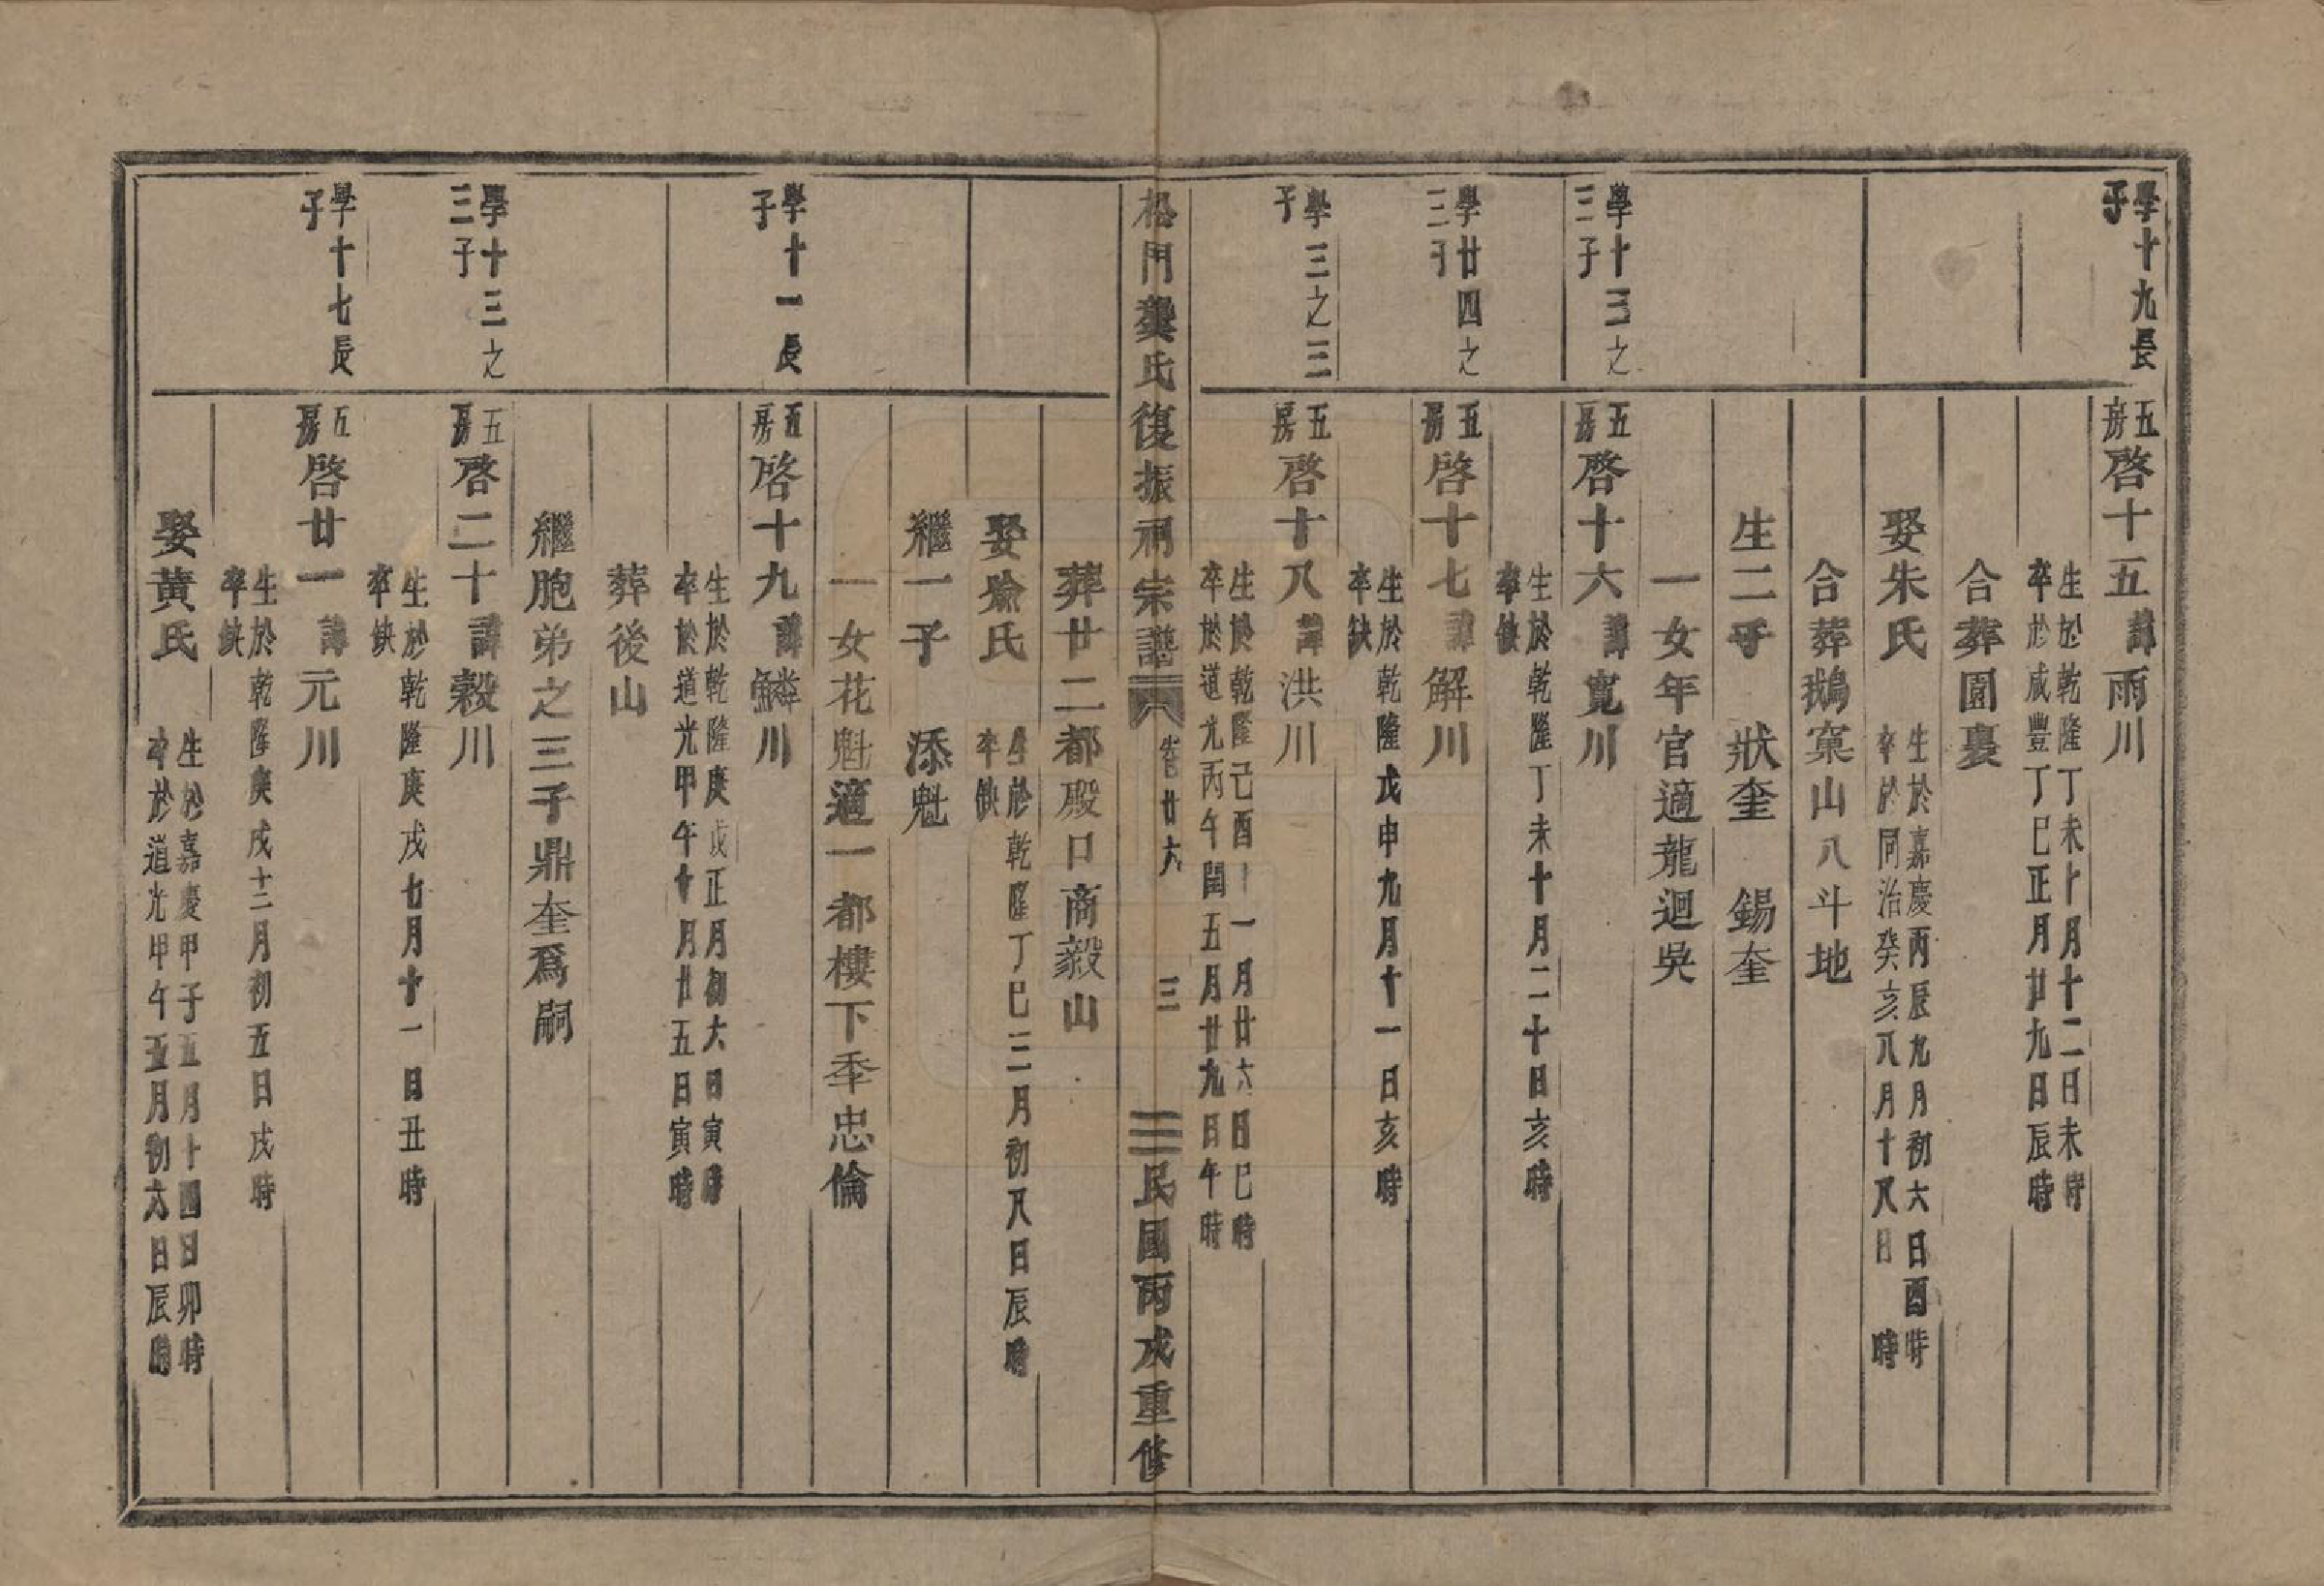 學十九長
子
五房啓十五諱雨川
生於乾隆丁未十月十二日未時
卒於咸豐丁巳正月廿九日辰時
合葬園裏
娶朱氏
生於嘉慶丙辰九月初六日酉時
卒於同治癸亥八月十八日　時
合葬鵝窠山八斗地
生二子　狀奎　錫奎
一女年官適龍迴吳
學十三之
三子
五房啓十六諱寬川
生於乾隆丁未十月二十日亥時
卒缺
學廿四之
三子
五房啓十七諱解川
生於乾隆戊申九月十一日亥時
卒缺
學三之三
子
五房啓十八諱洪川
生於乾隆己酉十一月廿六日巳時
卒於道光丙午閏五月廿九日午時
松門龔氏復振祠宗譜　卷廿六　三　民國丙戌重修
葬廿二都殿口商毅山
娶喻氏
生於乾隆丁巳三月初八日辰時
卒缺
繼一子　添魁
一女花魁適一都樓下季忠倫
學十一長
子
五房啓十九諱鱗川
生於乾隆庚戌正月初六日寅時
卒於道光甲午十月廿五日寅時
葬後山
繼胞弟之三子鼎奎爲嗣
學十三之
三子
五房啓二十諱穀川
生於乾隆庚戌七月十一日丑時
卒缺
學十七長
子
五房啓廿一諱元川
生於乾隆庚戌十二月初五日戌時
卒缺
娶黃氏
生於嘉慶甲子五月十四日卯時
卒於道光甲午五月初六日辰時